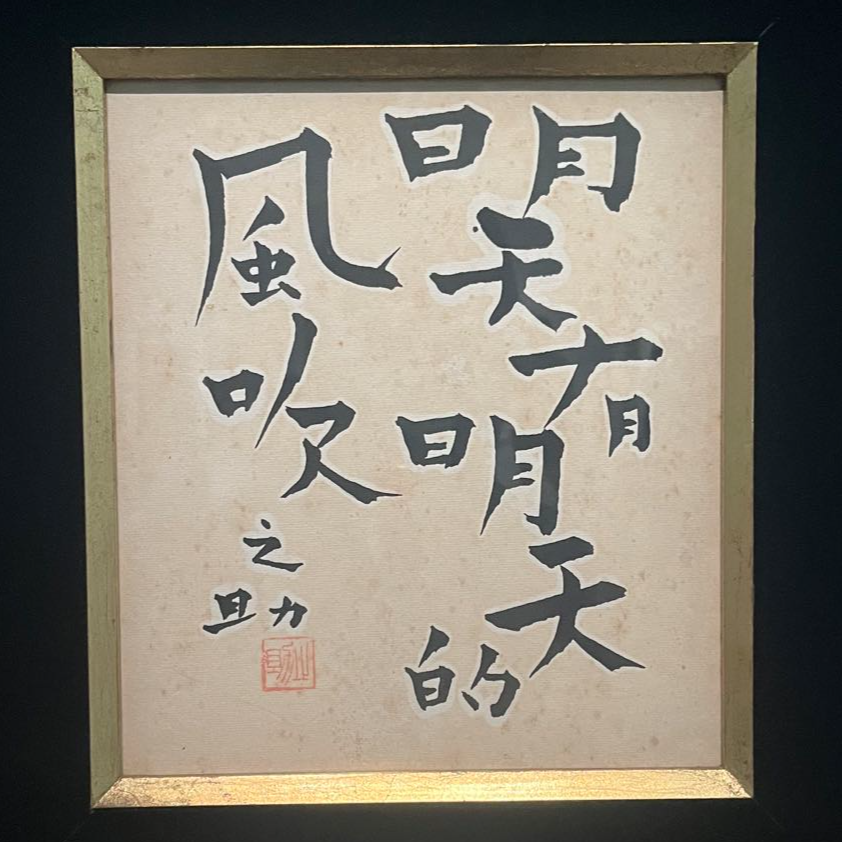 明天有明天的
風吹
之助
之助